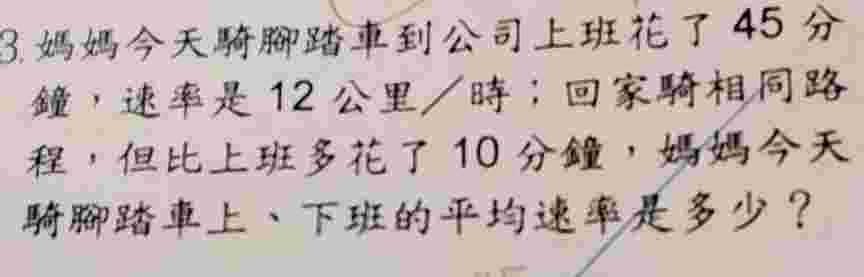 3. 媽媽今天騎腳踏車到公司上班花了 45 分
鐘，速率是 12 公里／時；回家騎相同路
程，但比上班多花了 10 分鐘，媽媽今天
騎腳踏車上、下班的平均速率是多少？